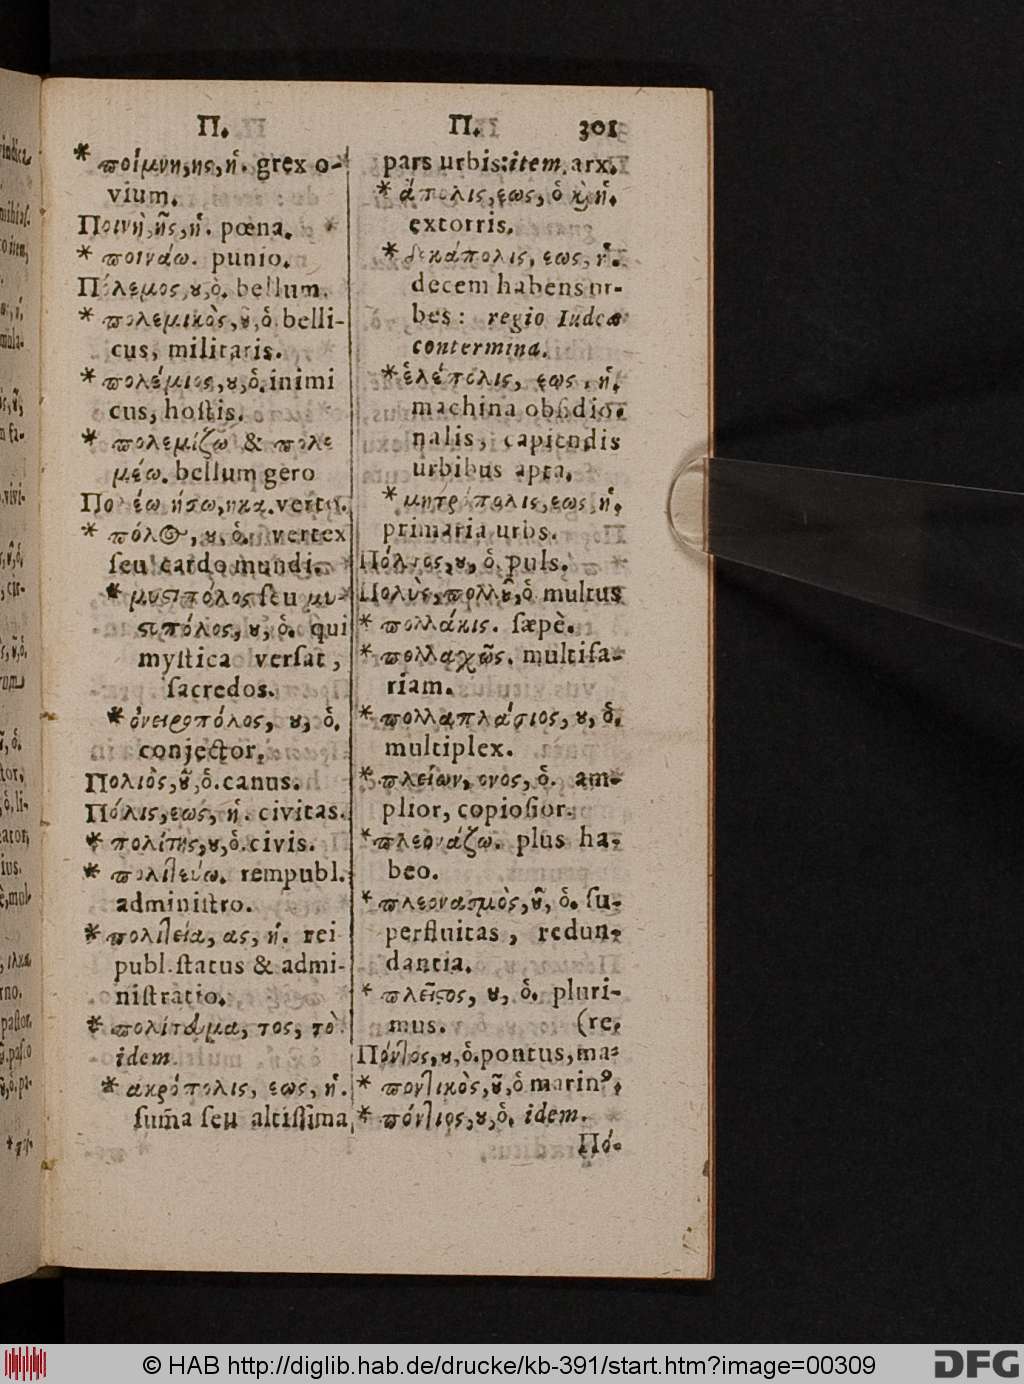 Π.
* ποίμνη, ης, ἡ. grex o-
vium.
Ποινὴ, ῆς, ἡ. pœna.
* ποινάω. punio.
Πόλεμος, ȣ, ὁ. bellum.
* πολεμικὸς, ȣ͂, ὁ. belli-
cus, militaris.
* πολέμιος, ȣ, ὁ. inimi
cus, hoſtis.
* πολεμίζω & πολε
μέω. bellum gero
Πολέω ήσω, ηκα. verto.
* πόλος, ȣ, ὁ. vertex
ſeu cardo mundi.
* μυσιπόλος ſeu μυ-
ϛιπόλος, ȣ, ὁ. qui
myſtica verſat,
ſacredos.
* ὀνειροπόλος, ȣ, ὁ.
conjector.
Πολιὸς, ȣ͂, ὁ. canus.
Πόλις, εως, ἡ. civitas.
* πολίτης, ȣ, ὁ. civis.
* πολιτεύω. rempubl.
adminiſtro.
* πολιτεία, ας, ἡ. rei
publ. ſtatus & admi-
niſtratio.
* πολίτευμα, τος, τὸ.
idem.
* ἀκρόπολις, εως, ἡ.
sum̃a ſeu altiſſima
Π. 301
pars urbis: item, arx.
* ἄπολις, εως, ὁ κὶ ἡ.
extorris.
* δεκάπολις, εως, ἡ.
decem habens ur-
bes: regio Iudeæ
contermina.
* ἑλέπολις, εως, ἡ.
machina obſidio-
nalis, capiendis
urbibus apta.
* μητρόπολις, εως, ἡ.
primaria urbs.
Πόλτος, ȣ, ὁ. puls.
Πολὺς, πολλȣ͂, ὁ multus
* πολλάκις. ſæpè.
* πολλαχῶς. multifa-
riam.
* πολλαπλάσιος, ȣ, ὁ.
multiplex.
* πλείων, ονος, ὁ. am-
plior, copioſior.
* πλεονάζω. plus ha-
beo.
* πλεονασμὸς, ȣ͂, ὁ. ſu-
perfluitas, redun-
dantia.
* πλεῖϛος, ȣ, ὁ. pluri-
mus. (re.
Πόντος, ȣ, ὁ. pontus, ma-
* ποντικὸς, ȣ͂, ὁ marinꝰ.
* πόντιος, ȣ, ὁ. idem.
Πό-
© HAB http://diglib.hab.de/drucke/kb-391/start.htm?image=00309
DFG